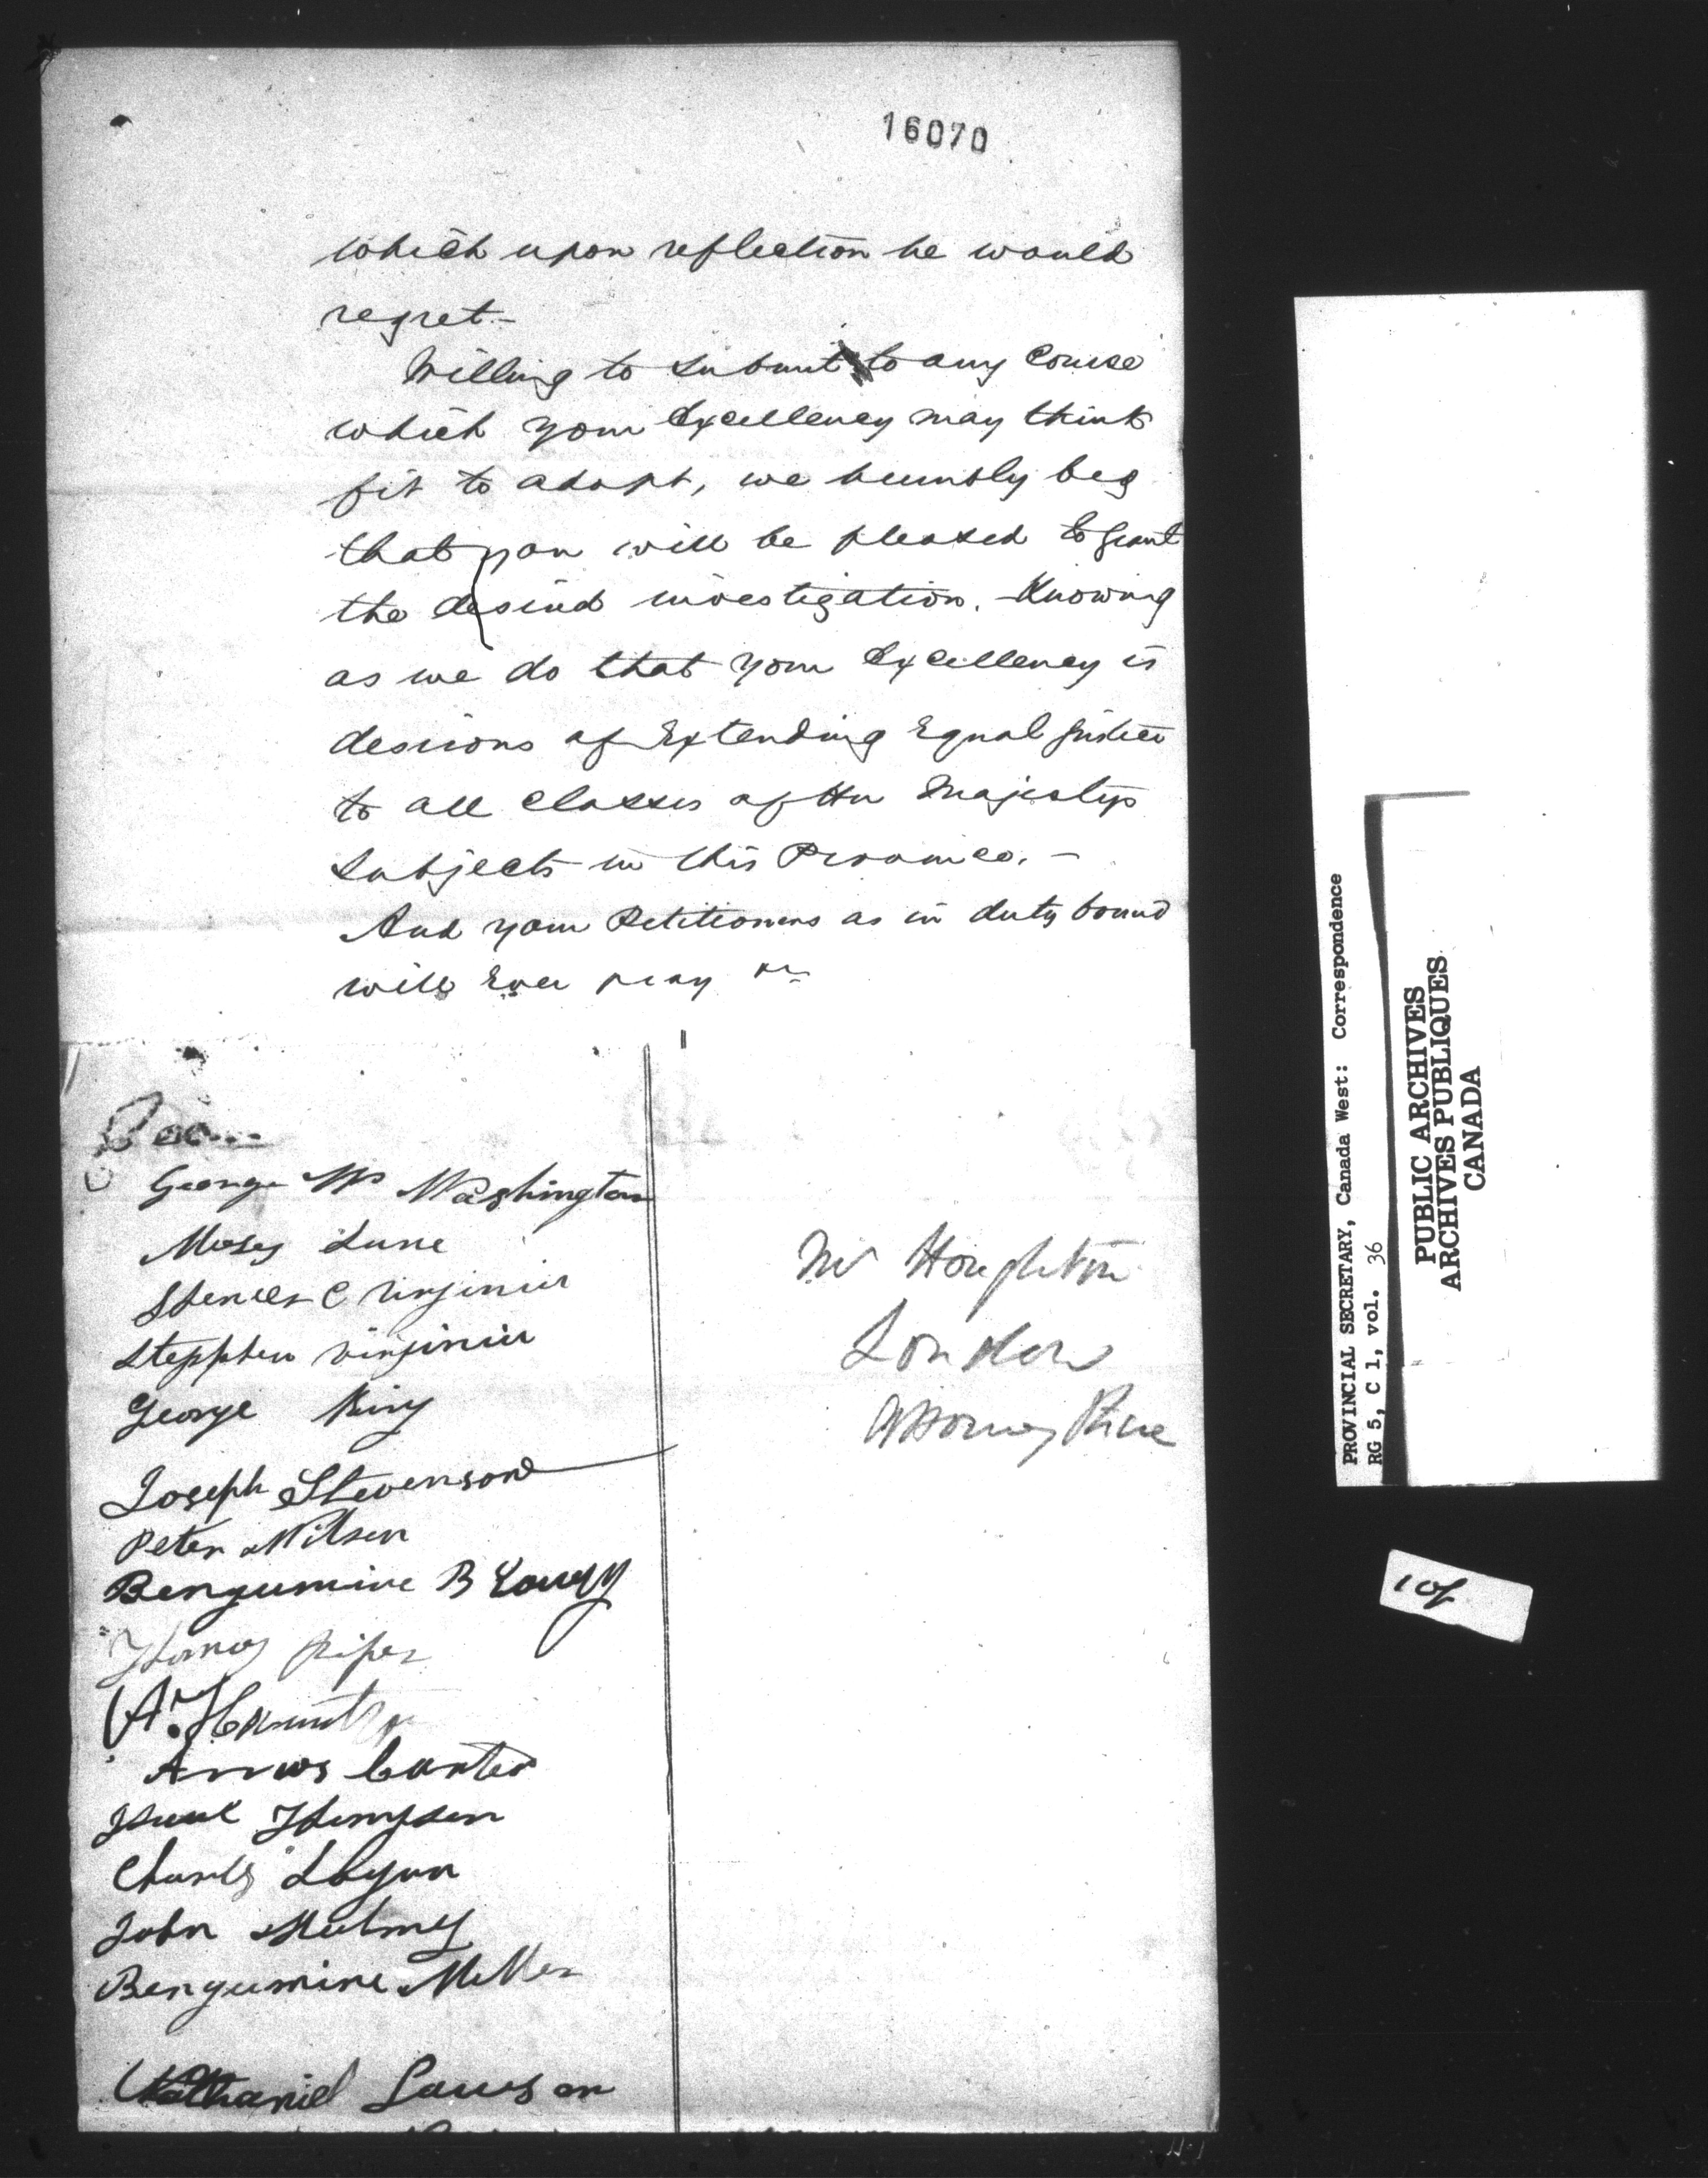 16070
which upon reflection he would
regret.-
Willing to submit to any Course
which your Excellency may think
fit to adopt, we humbly beg
that you will be pleased to grant
the desired investigation. Knowing
as we do that your Excellency is
desirous of Extending Equal Justice
to all Classes of Her Majestys
Subjects in this Province. -
And your Petitioners as in duty bound
will Ever pray
George W Washington
Moses Lune
Spencer C Virjinia
Stepphen virjinia
George King
Joseph Stevenson
Peter Wilson
Bengumine B
Thomas piper
A.
Amos Carter
Isaac Thompson
Charls Logun
John Holmes
Bengumine Miller
Nathaniel Lawson
Mr Houghton
London
Attorney
PROVINCIAL SECRETARY, Canada West: Correspondence
RG 5, C 1, vol. 36
PUBLIC ARCHIVES
ARCHIVES PUBLIQUES
CANADA